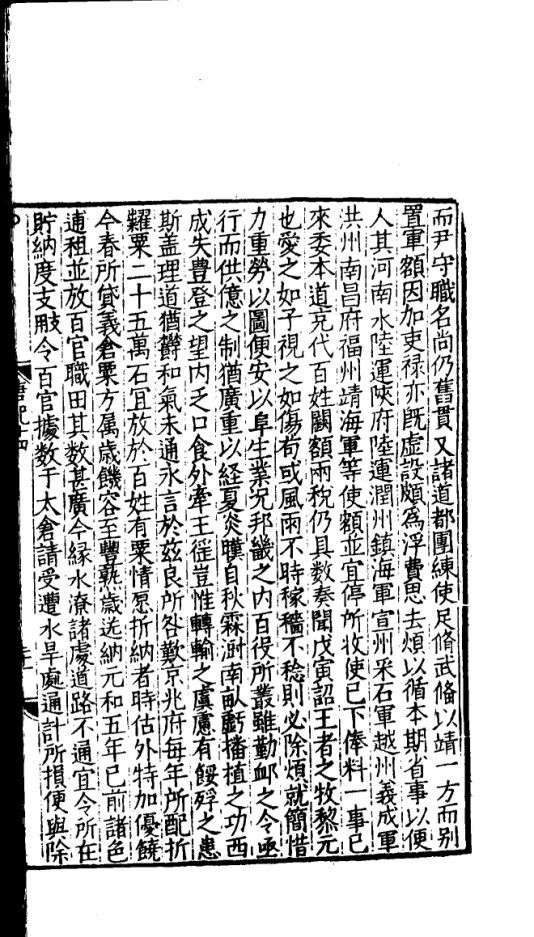 而尹守職名尚仍舊貫又諸道都團練使足脩武俻以靖一方而别
置軍額因加吏禄亦旣虚設頗爲浮費思去煩以循本期省事以便
人其河南水陸運陜府陸運潤州鎮海軍宣州采石軍越州義成軍
洪州南昌府福州靖海軍等使額並宜停所收使已下俸料一事已
來委本道充代百姓闕額兩稅仍具数奏聞戊寅詔王者之牧黎元
也愛之如子視之如傷苟或風雨不時稼穡不稔則必除煩就簡惜
力重勞以圖便安以阜生業况邦畿之内百役所叢雖勤䘏之令亟
行而供億之制猶廣重以経夏炎暵自秋霖澍南畝虧播植之功西
成失豊登之望内乏口食外牽王徭豈惟轉輸之虞慮有餒殍之患
斯盖理道猶欝和氣未通永言於兹良所咎歎京兆府每年所配折
糴粟二十五萬石宜放於百姓有粟情愿折納者時估外特加優饒
今春所貸義倉粟方属歳饑容至豐熟歳送納元和五年已前諸色
逋租並放百官職田其数甚廣今縁水潦諸處道路不通宜令所在
貯納度支𢾗令百官據数于太倉請受遭水旱處通計所損便與除
唐紀十四